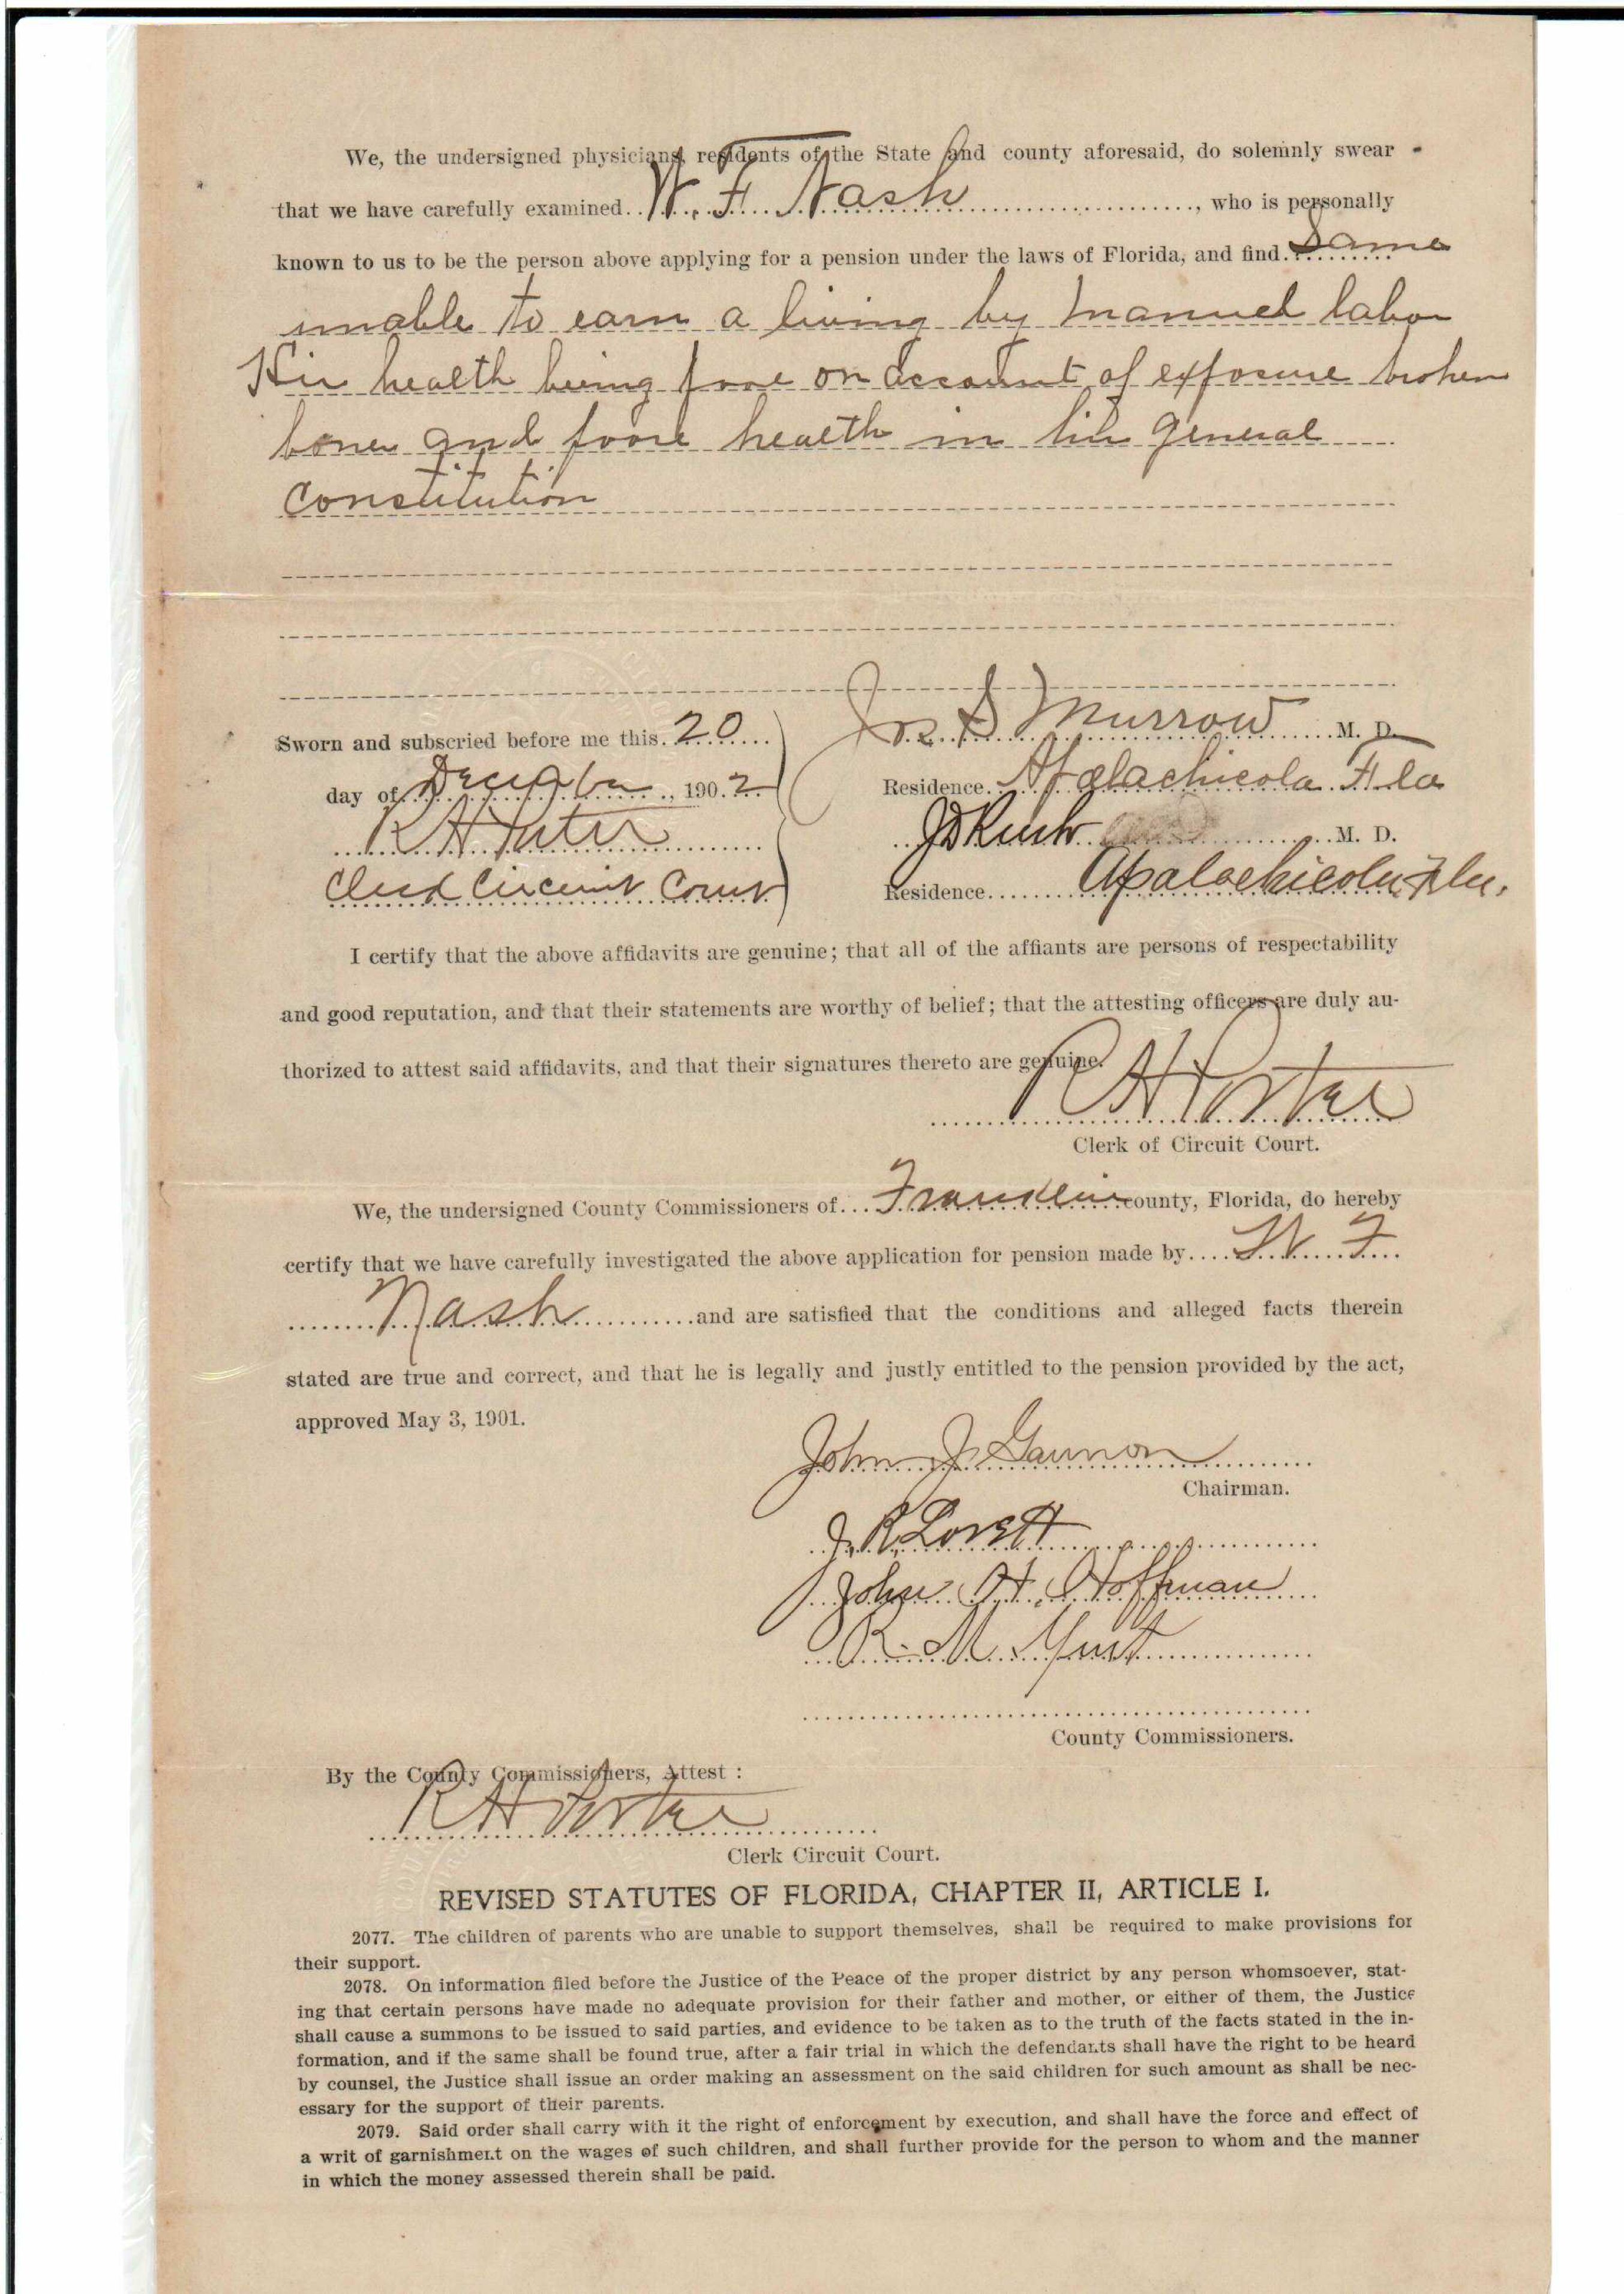 We, the undersigned physicians, residents of the State and county aforesaid, do solemnly swear
that we have carefully examined W. F. Nash, who is personally
known to us to be the person above applying for a pension under the laws of Florida, and find Same
unable to earn a living by manuel labor
His health being poore on account of exposure broken
bones and poore health in his general
constitution
Sworn and subscried before me this 20
day of December, 1902
R H Porter
Clerk Circuit Court
Jos S Murrow M. D.
Residence Apalachicola Fla
J D Rush M. D.
Residence Apalachicola, Fla.
I certify that the above affidavits are genuine; that all of the affiants are persons of respectability
and good reputation, and that their statements are worthy of belief; that the attesting officers are duly au-
thorized to attest said affidavits, and that their signatures thereto are genuine.
R H Porter
Clerk of Circuit Court.
We, the undersigned County Commissioners of Franklin county, Florida, do hereby
certify that we have carefully investigated the above application for pension made by W. F.
Nash and are satisfied that the conditions and alleged facts therein
stated are true and correct, and that he is legally and justly entitled to the pension provided by the act,
approved May 3, 1901.
John J Gannon
Chairman.
J. R. Lovett
John H. Hoffman
R. M.
County Commissioners.
By the County Commissioners, Attest :
R H Porter
Clerk Circuit Court.
REVISED STATUTES OF FLORIDA, CHAPTER II, ARTICLE I.
2077. The children of parents who are unable to support themselves, shall be required to make provisions for
their support.
2078. On information filed before the Justice of the Peace of the proper district by any person whomsoever, stat-
ing that certain persons have made no adequate provision for their father and mother, or either of them, the Justice
shall cause a summons to be issued to said parties, and evidence to be taken as to the truth of the facts stated in the in-
formation, and if the same shall be found true, after a fair trial in which the defendants shall have the right to be heard
by counsel, the Justice shall issue an order making an assessment on the said children for such amount as shall be nec-
essary for the support of their parents.
2079. Said order shall carry with it the right of enforcement by execution, and shall have the force and effect of
a writ of garnishment on the wages of such children, and shall further provide for the person to whom and the manner
in which the money assessed therein shall be paid.